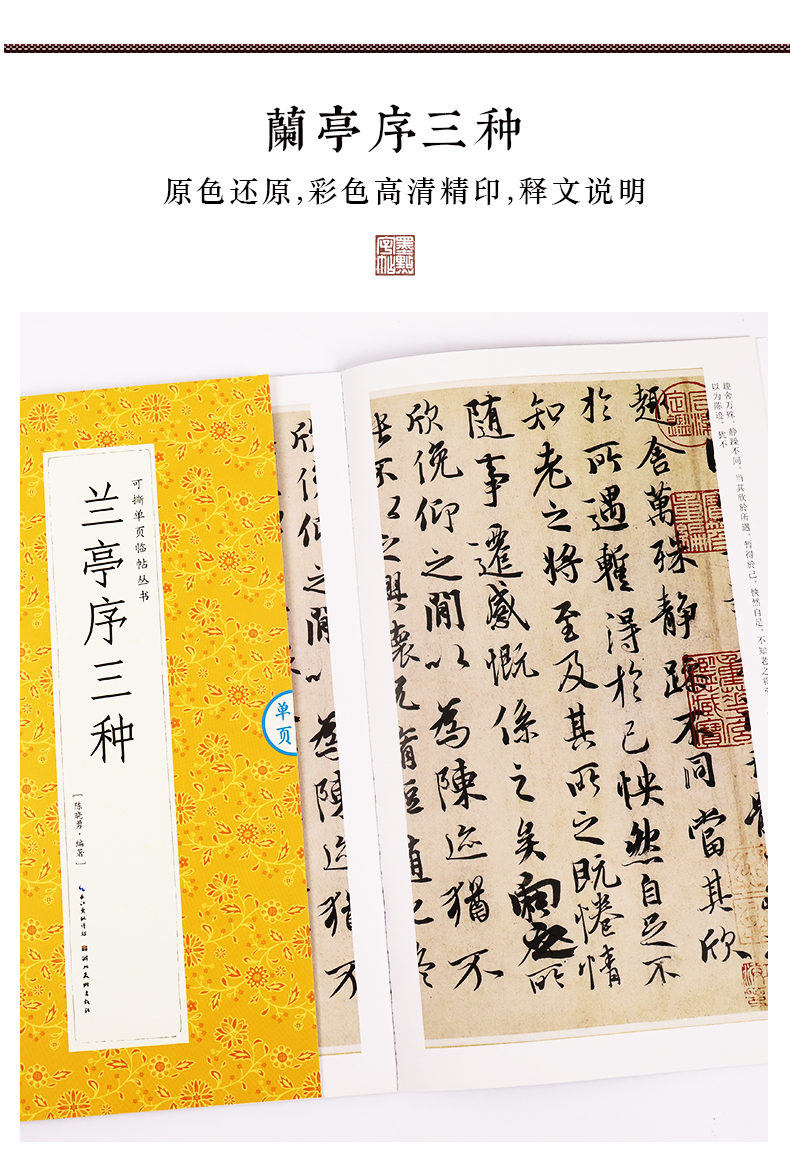 蘭亭序三种
原色还原,彩色高清精印,释文说明
墨點字帖
可撕单页临帖丛书
兰亭序三种
[陈晓勇·编著]
长江出版传媒
湖北美术出版社
单页
趣舍万殊，静躁不同，当其欣於所遇，暂得於己，怏然自足，不知老之将至
以为陈迹，犹不
趣舍萬殊静躁不同當其欣
於所遇暫得於己怏然自足不
知老之將至及其所之既惓情
隨事遷感慨係之矣向之所
欣俛仰之閒以為陳迹猶不
欣俛仰之閒以為陳迹猶不